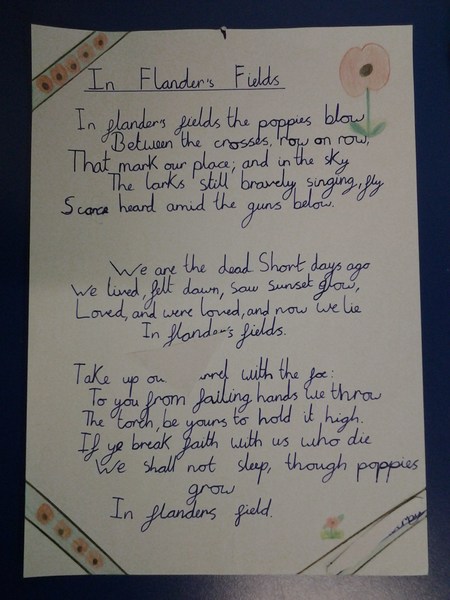 In Flander's Fields
In flander's fields the poppies blow
Between the crosses, row on row,
That mark our place; and in the sky
The larks still bravely singing, fly
Scarce heard amid the guns below.
We are the dead Short days ago
We lived, felt dawn, saw sunset glow,
Loved, and were loved, and now we lie
In flander's fields.
Take up ou rrel with the foe:
To you from failing hands we throw
The torch, be yours to hold it high.
If ye break faith with us who die
We shall not sleep, though poppies
grow
In flanders field.